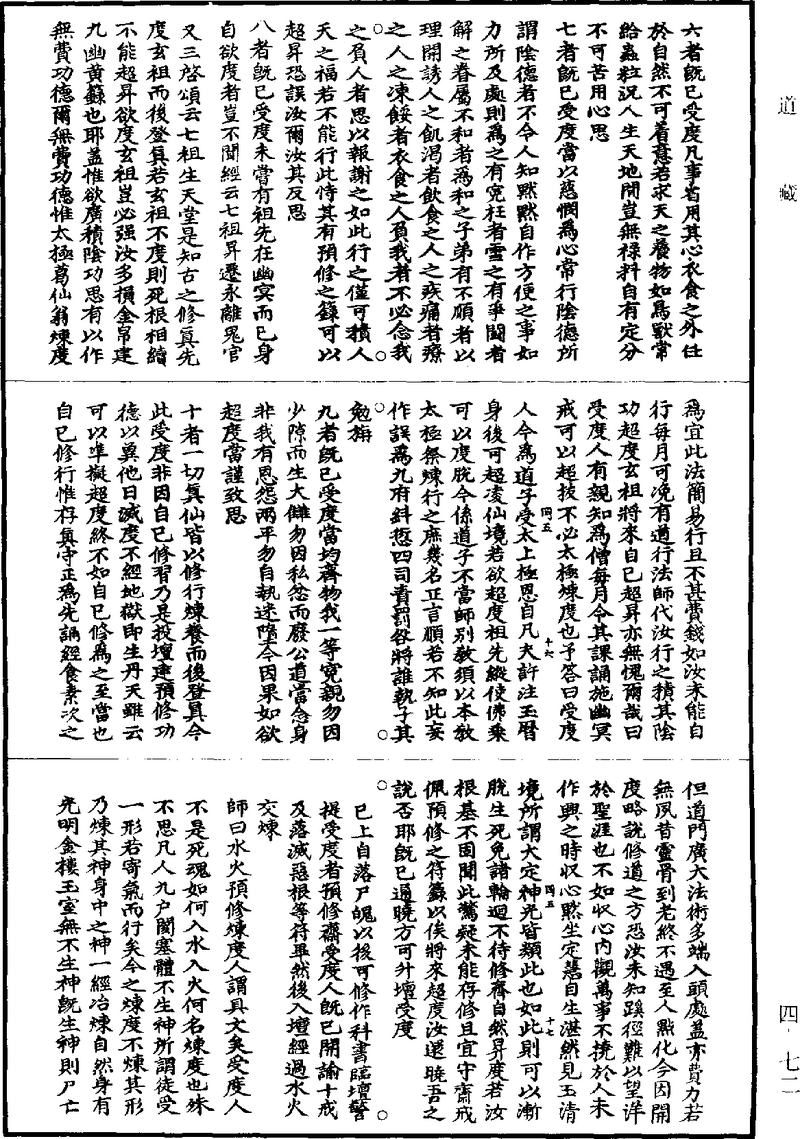 道藏
六者旣已受度凡事省用其心衣食之外任
於自然不可着意若求天之養物如鳥獸常
給蟲粒况人生天地間豈無祿料自有定分
不可苦用心思
七者旣已受度當以慈憫爲心常行陰德所
謂陰德者不令人知默默自作方便之事如
力所及處則爲之有寃枉者雪之有爭鬭者
解之眷屬不和者爲和之子弟有不順者以
理開誘人之飢渴者飲食之人之疾痛者療
之人之凍餒者衣食之人負我者不必念我
之負人者思以報謝之如此行之僅可積人
天之福若不能行此恃其有預修之籙可以
超昇恐誤汝爾汝其反思
八者旣已受度未嘗有祖先在幽冥而已身
自欲度者豈不聞經云七祖昇遷永離鬼官
又三啓頌云七祖生天堂是知古之修眞先
度玄祖而後登眞若玄祖不度則死根相續
不能超昇欲度玄祖豈必强汝多損金帛建
九幽黄籙也耶盖惟欲廣積陰功思有以作
無費功德爾無費功德惟太極葛仙翁煉度
爲宜此法簡易行且不甚費錢如汝未能自
行每月可凂有道行法師代汝行之積其陰
功超度玄祖將來自己超昇亦無愧爾或曰
受度人有親知爲僧每月令其課誦施幽冥
戒可以超拔不必太極煉度也予答曰受度
人今爲道子受太上極恩自凡夫許注玉曆
身後可超凌仙境若欲超度祖先縱使佛乘
可以度脫今係道子不當師别教須以本教
太極祭煉行之庶幾名正言順若不知此妄
作誤爲九府糾愆四司責罰咎將誰執子其
勉旃
九者旣已受度當均齊物我一等寃親勿因
少隙而生大讎勿因私忿而廢公道當念身
非我有恩怨兩平勿自執迷隨今因果如欲
超度當謹致思
十者一切眞仙皆以修行煉養而後登眞今
此受度非因自己修習乃是投壇建預修功
德以冀他日滅度不經地獄即生丹天雖云
可以凖擬超度終不如自已修爲之至當也
自已修行惟存眞守正爲先誦經食素次之
四五
十六
但道門廣大法術多端入頭處盖亦費力若
無夙昔靈骨到老終不遇至人點化今因開
度略說修道之方恐汝未知蹊徑難以望洋
於聖涯也不如收心內觀萬事不撓於人未
作興之時收心默坐定慧自生湛然見玉清
境所謂大定神光皆類此也如此則可以漸
脫生死免諸輪迴不待修齊自然昇度若汝
根基不固聞此驚疑未能存修且宜守齋戒
佩預修之符籙以俟將來超度汝還曉吾之
說否耶旣已通曉方可升壇受度
已上自落尸魄以後可修作科書臨壇警
提受度者預修齋受度人旣已開諭十戒
及落滅惡根等符畢然後入壇經過水火
交煉
師曰水火預修煉度人謂具文矣受度人
不是死魂如何入水入火何名煉度也殊
不思凡人九户闔塞體不生神所謂徒受
一形若寄氣而行矣今之煉度不煉其形
乃煉其神身中之神一經冶煉自然身有
光明金樓玉室無不生神旣生神則尸亡
四五
十七
四·七二